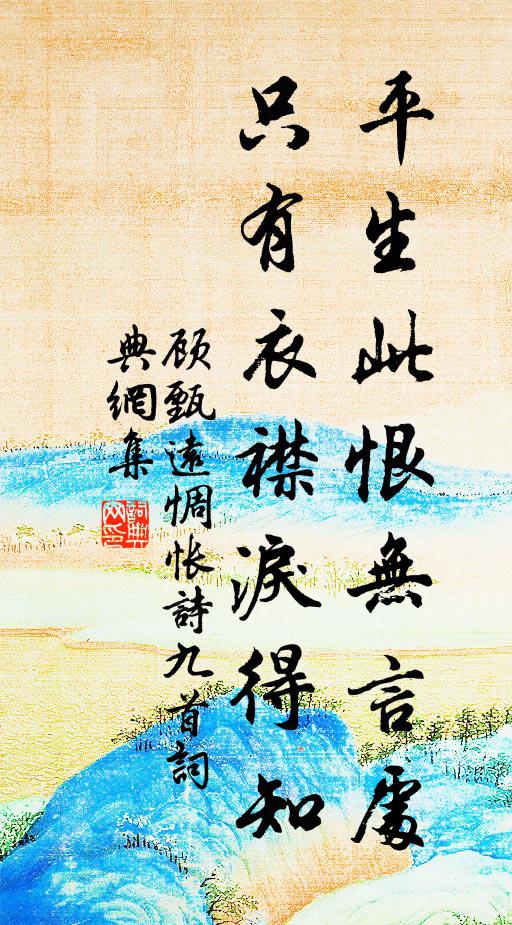 平生此恨無言處
只有衣襟淚得知
顧甄遠惆怅詩九首詞
典網集
詞典
网印